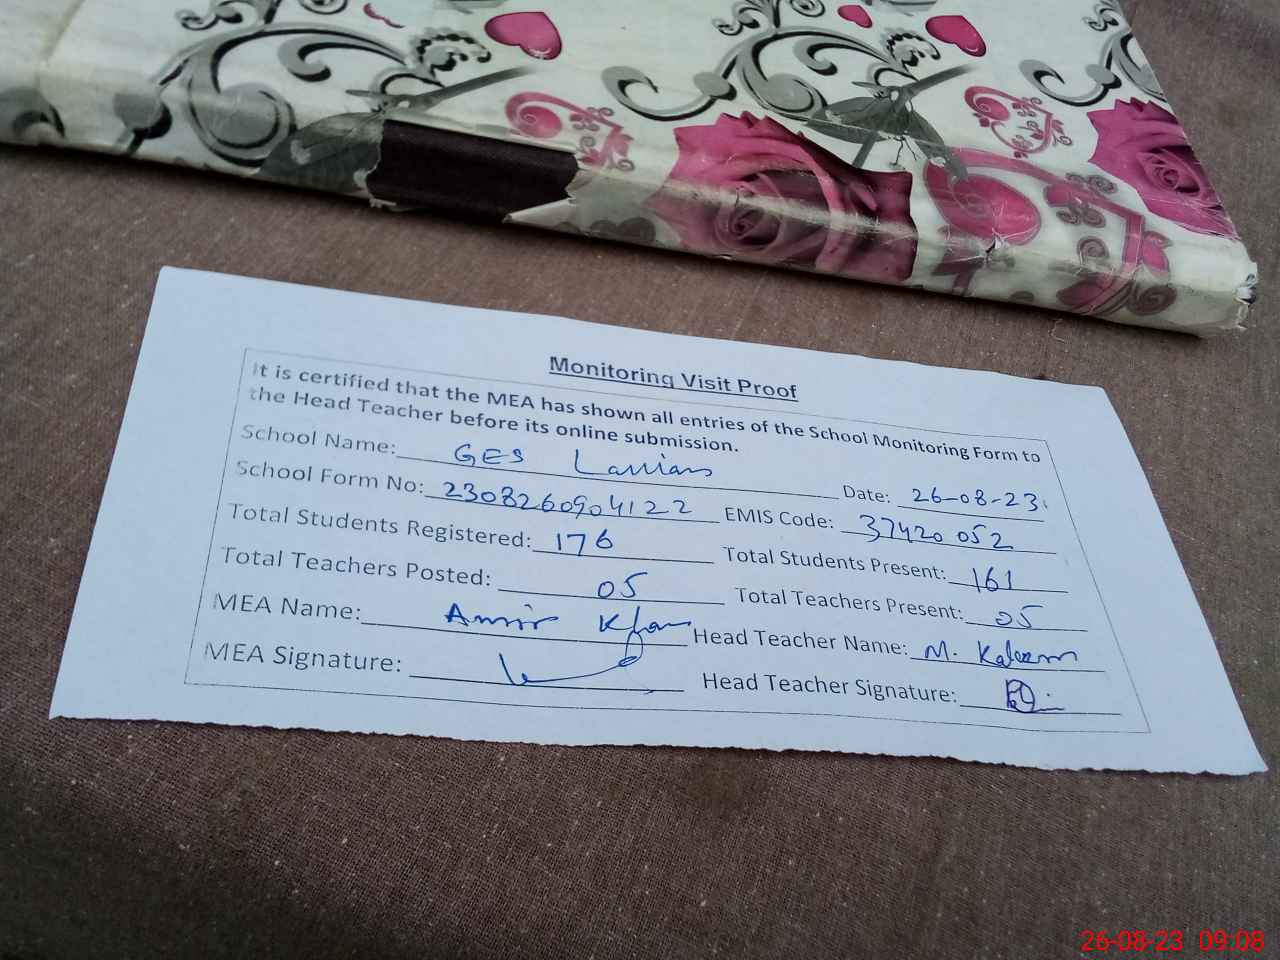 Monitoring Visit Proof
It is certified that the MEA has shown all entries of the School Monitoring Form to
the Head Teacher before its online submission.
School Name: GES Date: 26-08-23
School Form No: 2308260904122 EMIS Code: 37420052
Total Students Registered: 176 Total Students Present: 161
Total Teachers Posted: 05 Total Teachers Present: 05
MEA Name: Amir Khan Head Teacher Name: M. Kaleem
MEA Signature: Head Teacher Signature:
26-08-23 09:08